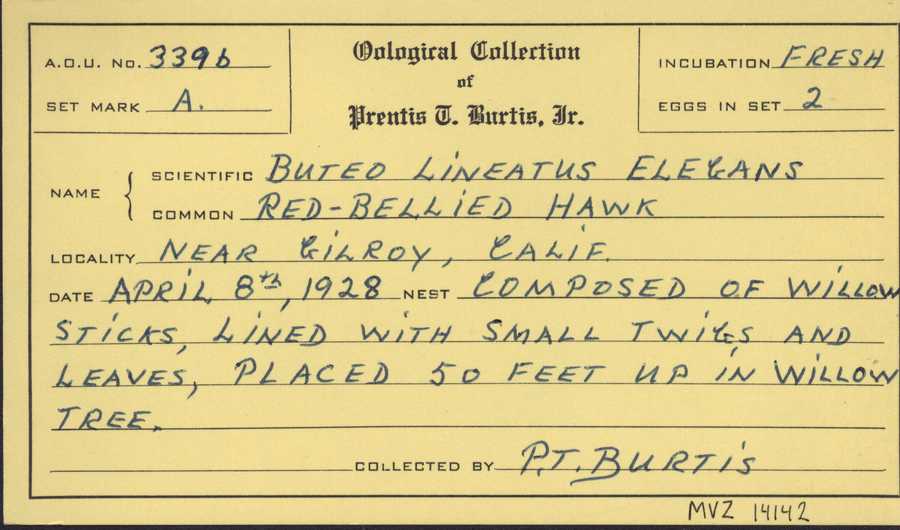 A.O.U. No. 339b
Oological Collection
of
Prentis T. Burtis, Jr.
INCUBATION FRESH
SET MARK A.
EGGS IN SET 2
NAME { SCIENTIFIC BUTEO LINEATUS ELEGANS
COMMON RED-BELLIED HAWK
LOCALITY NEAR GILROY, CALIF.
DATE APRIL 8th, 1928 NEST COMPOSED OF WILLOW
STICKS, LINED WITH SMALL TWIGS AND
LEAVES, PLACED 50 FEET UP IN WILLOW
TREE.
COLLECTED BY P.T. BURTIS
MVZ 14142